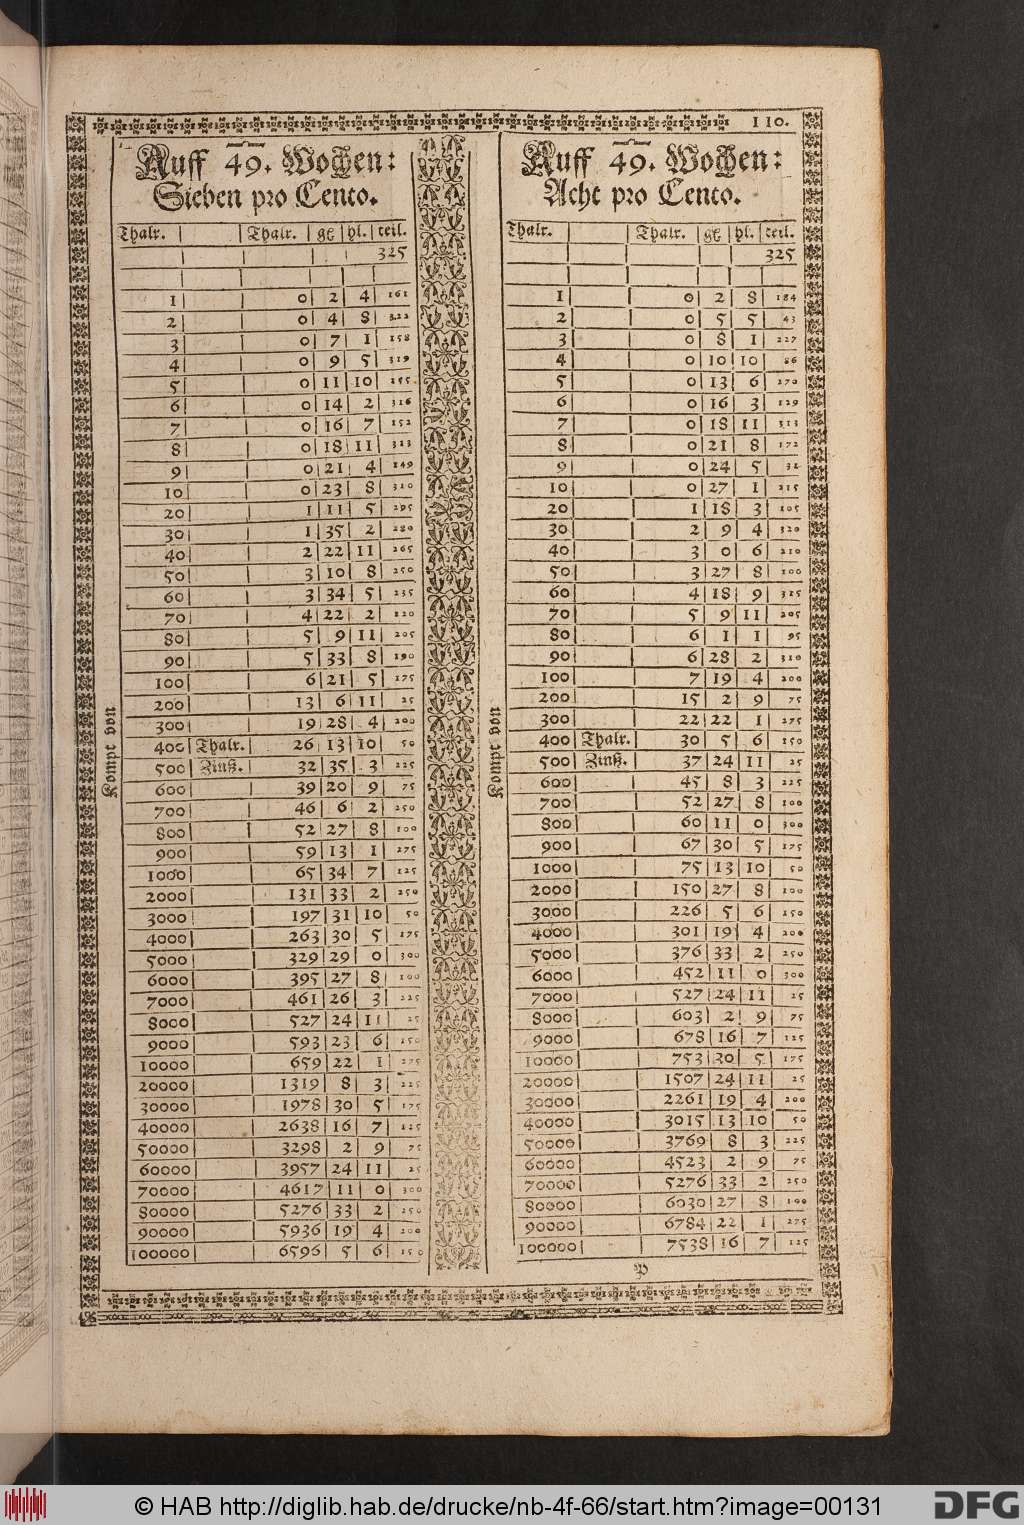 110.
Auff 49. Wochen:
Sieben pro Cento.
Thalr. Thalr. gℓ hl. teil.
325
1 0 2 4 161
2 0 4 8 322
3 0 7 1 158
4 0 9 5 319
5 0 11 10 155
6 0 14 2 316
7 0 16 7 152
8 0 18 11 313
9 0 21 4 149
10 0 23 8 310
20 1 11 5 295
30 1 35 2 280
40 2 22 11 265
50 3 10 8 250
60 3 34 5 235
70 4 22 2 220
80 5 9 11 205
90 5 33 8 190
100 6 21 5 175
200 13 6 11 25
300 19 28 4 200
400 Thalr. 26 13 10 50
500 Zinß. 32 35 3 225
600 39 20 9 75
700 46 6 2 250
800 52 27 8 100
900 59 13 1 275
1000 65 34 7 125
2000 131 33 2 250
3000 197 31 10 50
4000 263 30 5 175
5000 329 29 0 300
6000 395 27 8 100
7000 461 26 3 225
8000 527 24 11 25
9000 593 23 6 150
10000 659 22 1 275
20000 1319 8 3 225
30000 1978 30 5 175
40000 2638 16 7 125
50000 3298 2 9 75
60000 3957 24 11 25
70000 4617 11 0 300
80000 5276 33 2 250
90000 5936 19 4 200
100000 6596 5 6 150
Kompt von
Auff 49. Wochen:
Acht pro Cento.
Thalr. Thalr. gℓ hl. teil.
325
1 0 2 8 184
2 0 5 5 43
3 0 8 1 227
4 0 10 10 86
5 0 13 6 270
6 0 16 3 129
7 0 18 11 313
8 0 21 8 172
9 0 24 5 31
10 0 27 1 215
20 1 18 3 105
30 2 9 4 320
40 3 0 6 210
50 3 27 8 100
60 4 18 9 315
70 5 9 11 205
80 6 1 1 95
90 6 28 2 310
100 7 19 4 200
200 15 2 9 75
300 22 22 1 275
400 Thalr. 30 5 6 150
500 Zinß. 37 24 11 25
600 45 8 3 225
700 52 27 8 100
800 60 11 0 300
900 67 30 5 175
1000 75 13 10 50
2000 150 27 8 100
3000 226 5 6 150
4000 301 19 4 200
5000 376 33 2 250
6000 452 11 0 300
7000 527 24 11 25
8000 603 2 9 75
9000 678 16 7 125
10000 753 30 5 175
20000 1507 24 11 25
30000 2261 19 4 200
40000 3015 13 10 50
50000 3769 8 3 225
60000 4523 2 9 75
70000 5276 33 2 250
80000 6030 27 8 100
90000 6784 22 1 275
100000 7538 16 7 125
Kompt von
P
© HAB http://diglib.hab.de/drucke/nb-4f-66/start.htm?image=00131
DFG